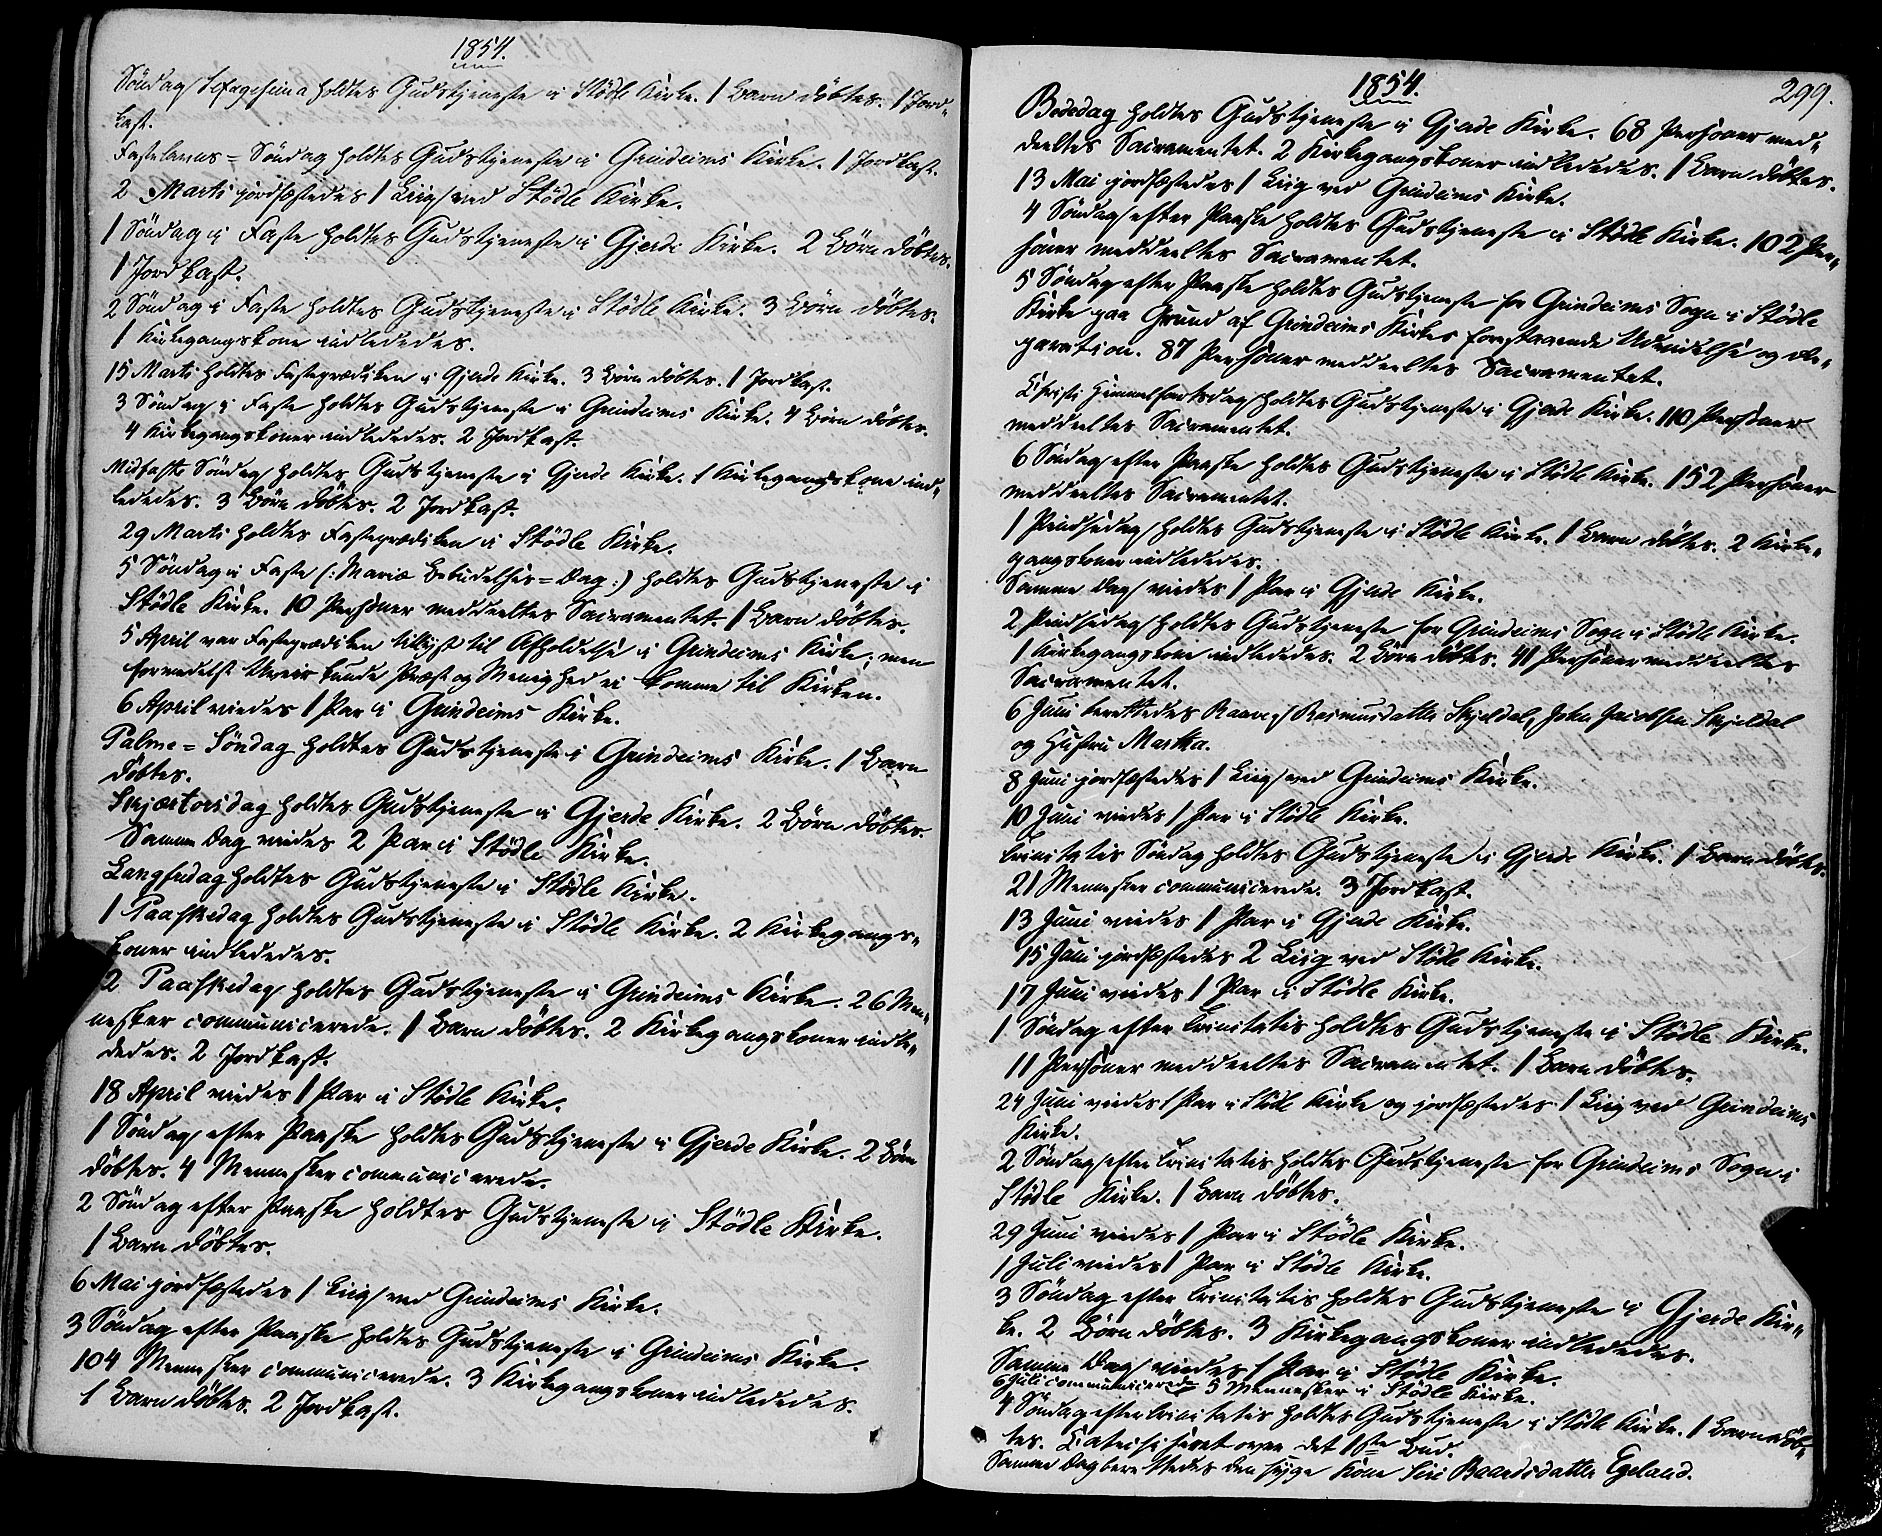 1854.
Søndag Sexagesima holdtes Gudstjeneste i Stødle Kirke. 1 Barn døbtes. 1 Jord-
kast.
Fastelavns=Søndag holdtes Gudstjeneste i Grindeims Kirke. 1 Jordkast.
2 Marts jordfæstedes 1 Liig ved Stødle Kirke.
1 Søndag i Faste holdtes Gudstjeneste i Gjerde Kirke. 2 Børn døbtes.
1 Jordkast.
2 Søndag i Faste holdtes Gudstjeneste i Stødle Kirke. 3 Børn døbtes.
1 Kirkegangskone indlededes.
15 Marts holdtes Fasteprædiken i Gjerde Kirke. 3 Børn døbtes. 1 Jordkast.
3 Søndag i Faste holdtes Gudstjeneste i Grindeims Kirke. 4 Børn døbtes.
4 Kirkegangskoner indlededes. 2 Jordkast.
Midfaste Søndag holdtes Gudstjeneste i Gjerde Kirke. 1 Kirkegangskone ind-
lededes. 3 Børn døbtes. 2 Jordkast.
29 Marts holdtes Fasteprædiken i Stødle Kirke.
5 Søndag i Faste (: Mariæ Bebudelses=Dag :) holdtes Gudstjeneste i
Stødle Kirke. 10 Personer meddeeltes Sacramentet. 1 Barn døbtes.
5 April var Fasteprædiken tillyst til Afholdelse i Grindeims Kirke, men
formedelst Uveir kunde Præst og Menighed ei komme til Kirken.
6 April viedes 1 Par i Grindeims Kirke.
Palme=Søndag holdtes Gudstjeneste i Grindeims Kirke. 1 Barn
døbtes.
Skjærtorsdag holdtes Gudstjeneste i Gjerde Kirke. 2 Børn døbtes.
Samme Dag viedes 2 Par i Stødle Kirke.
Langfredag holdtes Gudstjeneste i Stødle Kirke.
1 Paaskedag holdtes Gudstjeneste i Stødle Kirke. 2 Kirkegangs-
koner indlededes.
2 Paaskedag holdtes Gudstjeneste i Grindeims Kirke. 26 Men-
nesker communicerede. 1 Barn døbtes. 2 Kirkegangskoner indle-
dedes. 2 Jordkast.
18 April viedes 1 Par i Stødle Kirke.
1 Søndag efter Paaske holdtes Gudstjeneste i Gjerde Kirke. 2 Børn
døbtes. 4 Mennesker communicerede.
2 Søndag efter Paaske holdtes Gudstjeneste i Stødle Kirke.
1 Barn døbtes.
6 Mai jordfæstedes 1 Liig ved Grindeims Kirke.
3 Søndag efter Paaske holdtes Gudstjeneste i Grindeims Kirke.
104 Mennesker communicerede. 3 Kirkegangskoner indlededes.
1 Barn døbtes. 2 Jordkast.
1854.
299.
Bededag holdtes Gudstjeneste i Gjerde Kirke. 68 Personer med-
deeltes Sacramentet. 2 Kirkegangskoner indlededes. 1 Barn døbtes.
13 Mai jordfæstedes 1 Liig ved Grindeims Kirke.
4 Søndag efter Paaske holdtes Gudstjeneste i Stødle Kirke. 102 Per-
soner meddeeltes Sacramentet.
5 Søndag efter Paaske holdtes Gudstjeneste for Grindeims Sogn i Stødle
Kirke paa Grund af Grindeims Kirkes forestaaende Udvidelse og Re-
paration. 87 Personer meddeeltes Sacramentet.
Christi Himmelfartsdag holdtes Gudstjeneste i Gjerde Kirke. 110 Personer
meddeeltes Sacramentet.
6 Søndag efter Paaske holdtes Gudstjeneste i Stødle Kirke. 152 Personer
meddeeltes Sacramentet.
1 Pindsedag holdtes Gudstjeneste i Stødle Kirke. 1 Barn døbtes. 2 Kirke-
gangskoner indlededes.
Samme Dag viedes 1 Par i Gjerde Kirke.
2 Pindsedag holdtes Gudstjeneste for Grindeims Sogn i Stødle Kirke.
1 Kirkegangskone indlededes. 2 Børn døbtes. 41 Personer meddeeltes
Sacramentet.
6 Juni berettedes Rasmusdatter Skjeldal, John Jacobsen Skjeldal
og Hustru Martha.
8 Juni jordfæstedes 1 Liig ved Grindeims Kirke.
10 Juni viedes 1 Par i Stødle Kirke.
Trinitatis Søndag holdtes Gudstjeneste i Gjerde Kirke. 1 Barn døbtes.
21 Mennesker communicerede. 3 Jordkast.
13 Juni viedes 1 Par i Gjerde Kirke.
15 Juni jordfæstedes 2 Liig ved Stødle Kirke.
17 Juni viedes 1 Par i Stødle Kirke.
1 Søndag efter Trinitatis holdtes Gudstjeneste i Stødle Kirke.
11 Personer meddeeltes Sacramentet. 1 Barn døbtes.
24 Juni viedes 1 Par i Stødle Kirke og jordfæstedes 1 Liig ved Grindeims
Kirke.
2 Søndag efter Trinitatis holdtes Gudstjeneste for Grindeims Sogn i
Stødle Kirke. 1 Barn døbtes.
29 Juni viedes 1 Par i Stødle Kirke.
1 Juli viedes 1 Par i Stødle Kirke.
3 Søndag efter Trinitatis holdtes Gudstjeneste i Gjerde Kir-
ke. 2 Børn døbtes. 3 Kirkegangskoner indlededes.
Samme Dag viedes 1 Par i Stødle Kirke.
6 Juli communicerede 5 Mennesker i Stødle Kirke.
4 Søndag efter Trinitatis holdtes Gudstjeneste i Stødle Kirke. 1 Barn døb-
tes. Catechiseret over det 1ste Bud.
Samme Dag berettedes den syge Kone Siri Baardsdatter Egeland.